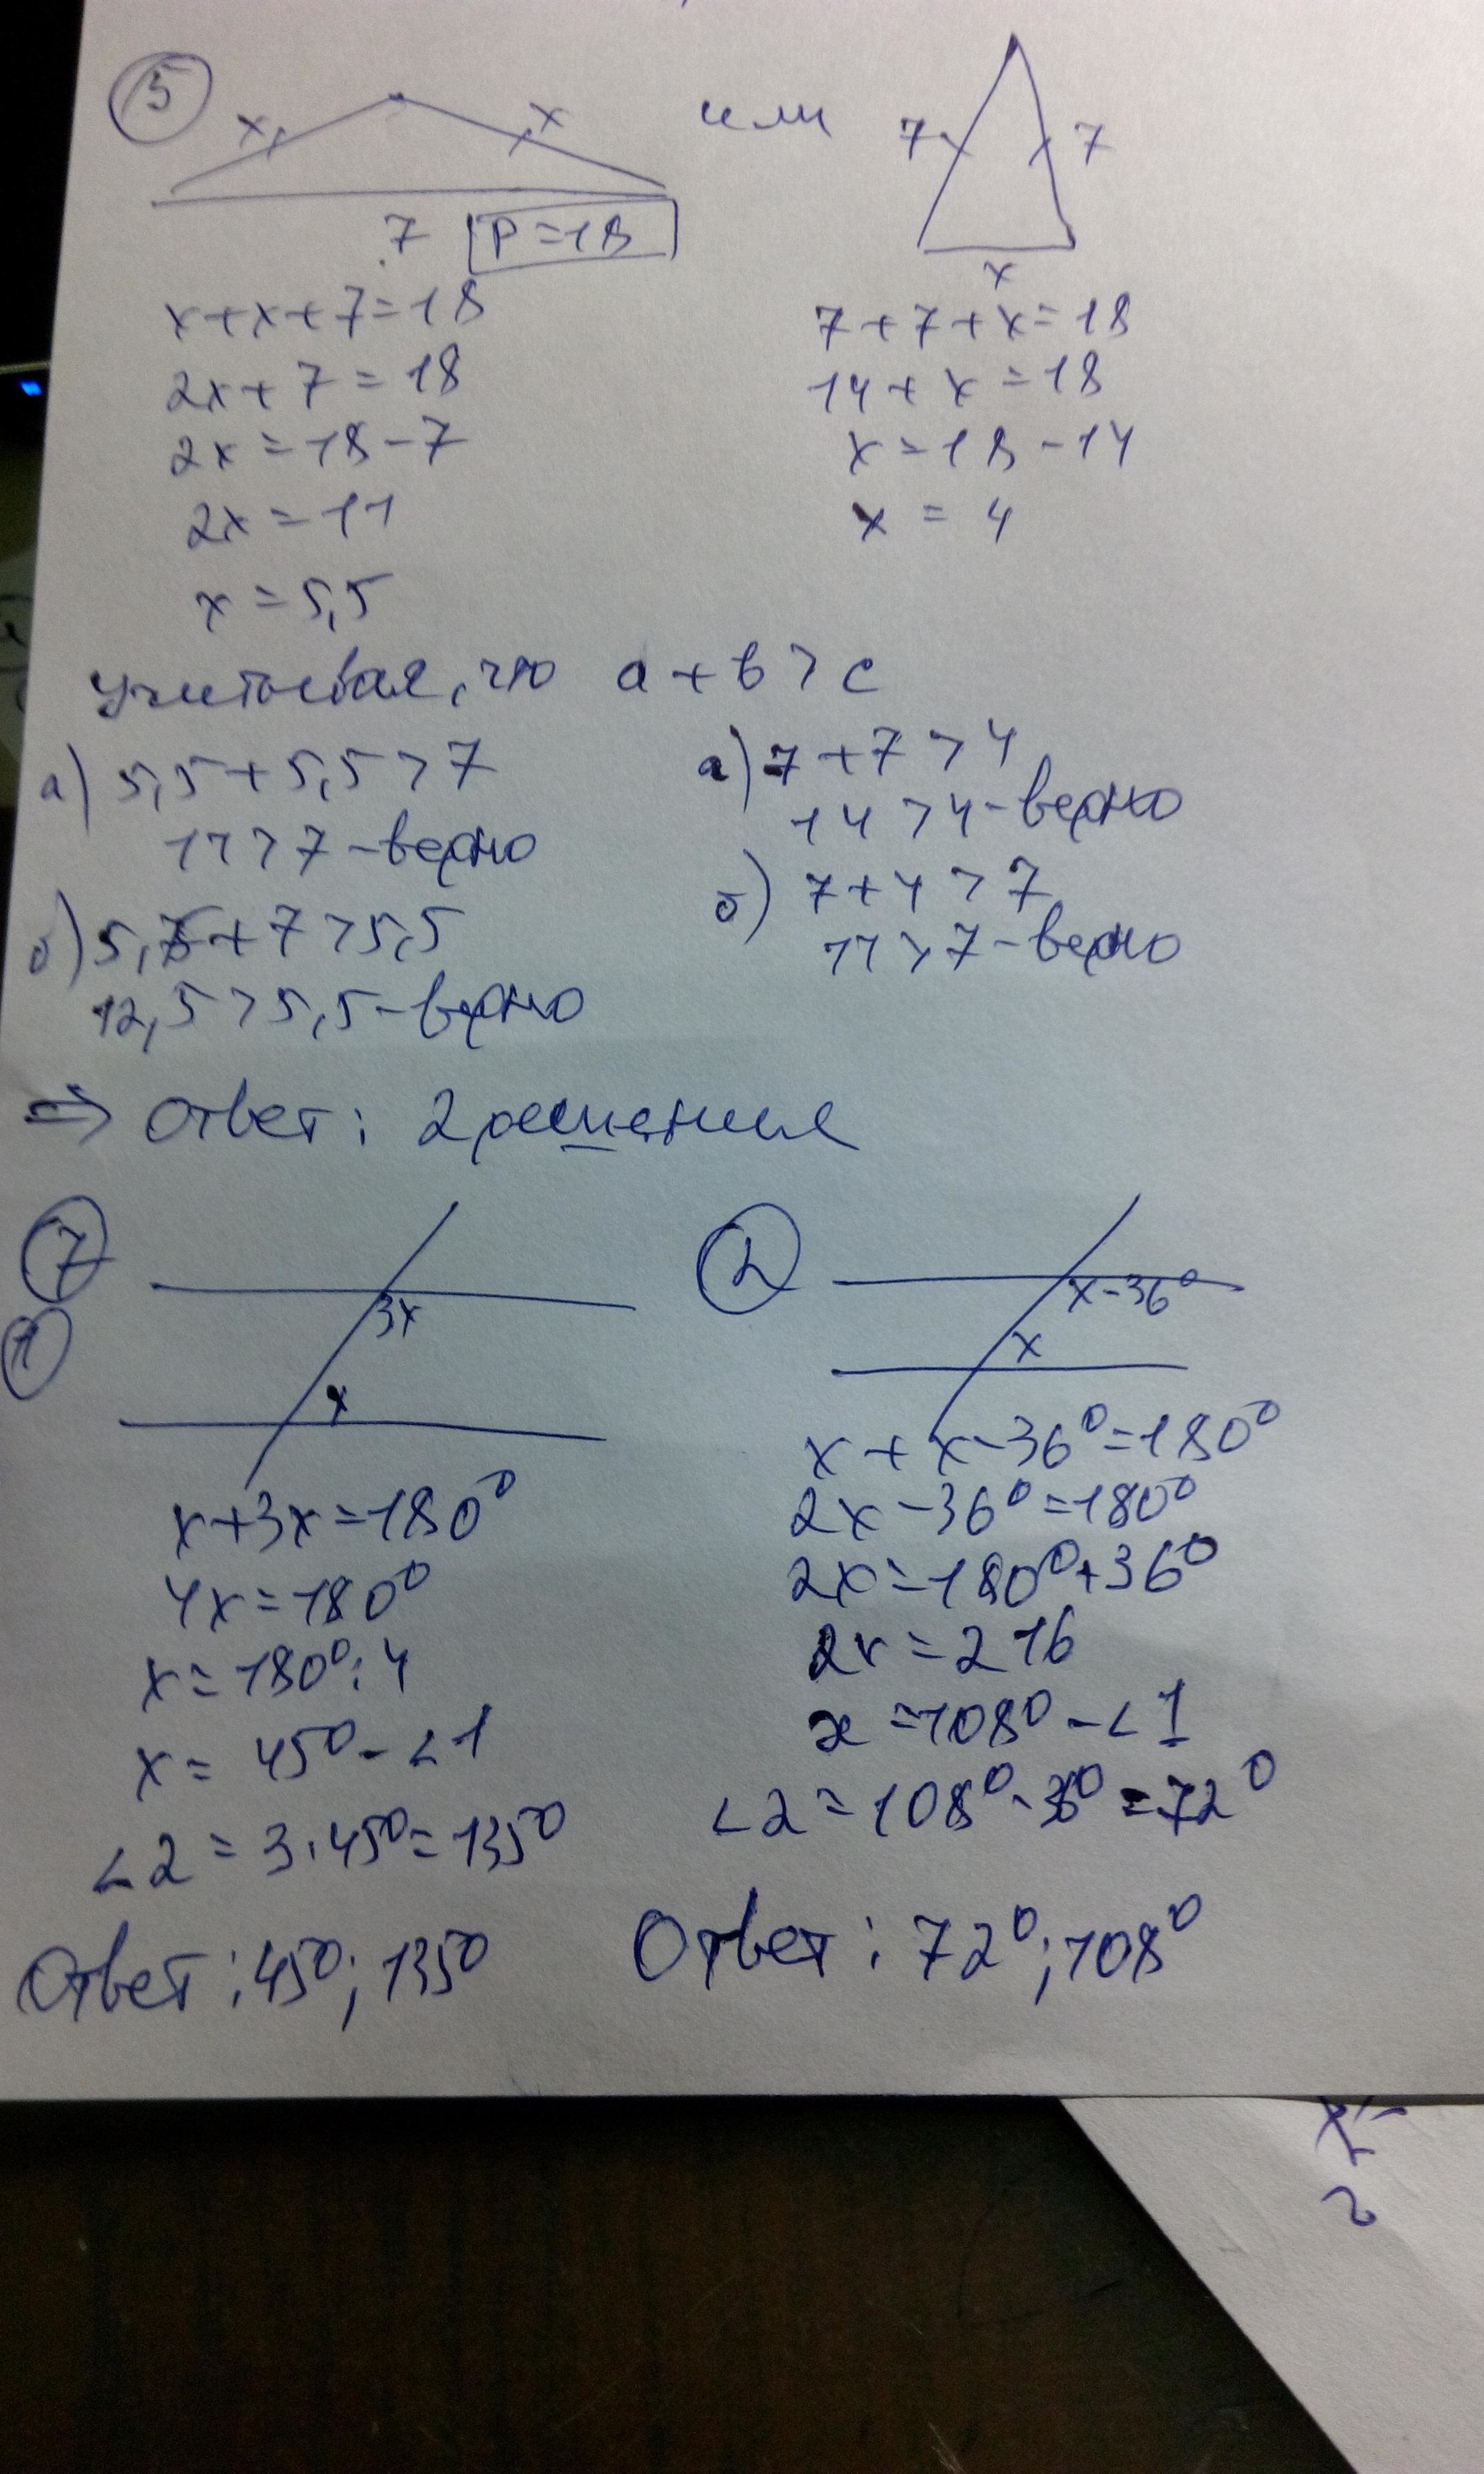 5
x x или 7 7
7 P=18 x
x+x+7=18
2x+7=18
2x=18-7
2x=11
x=5,5
7+7+x=18
14+x=18
x=18-14
x=4
учитывая, что a+b>c
а) 5,5+5,5>7
11>7-верно
б) 5,5+7>5,5
12,5>5,5-верно
а) 7+7>4
14>4-верно
б) 7+4>7
11>7-верно
⇒ Ответ: 2 решения
7
1
3x
x
x+3x=180°
4x=180°
x=180°:4
x=45°-∠1
∠2=3·45°=135°
Ответ: 45°; 135°
2
x-36°
x
x+x-36°=180°
2x-36°=180°
2x=180°+36°
2x=216
x=108°-∠1
∠2=108°-36°=72°
Ответ: 72°; 108°